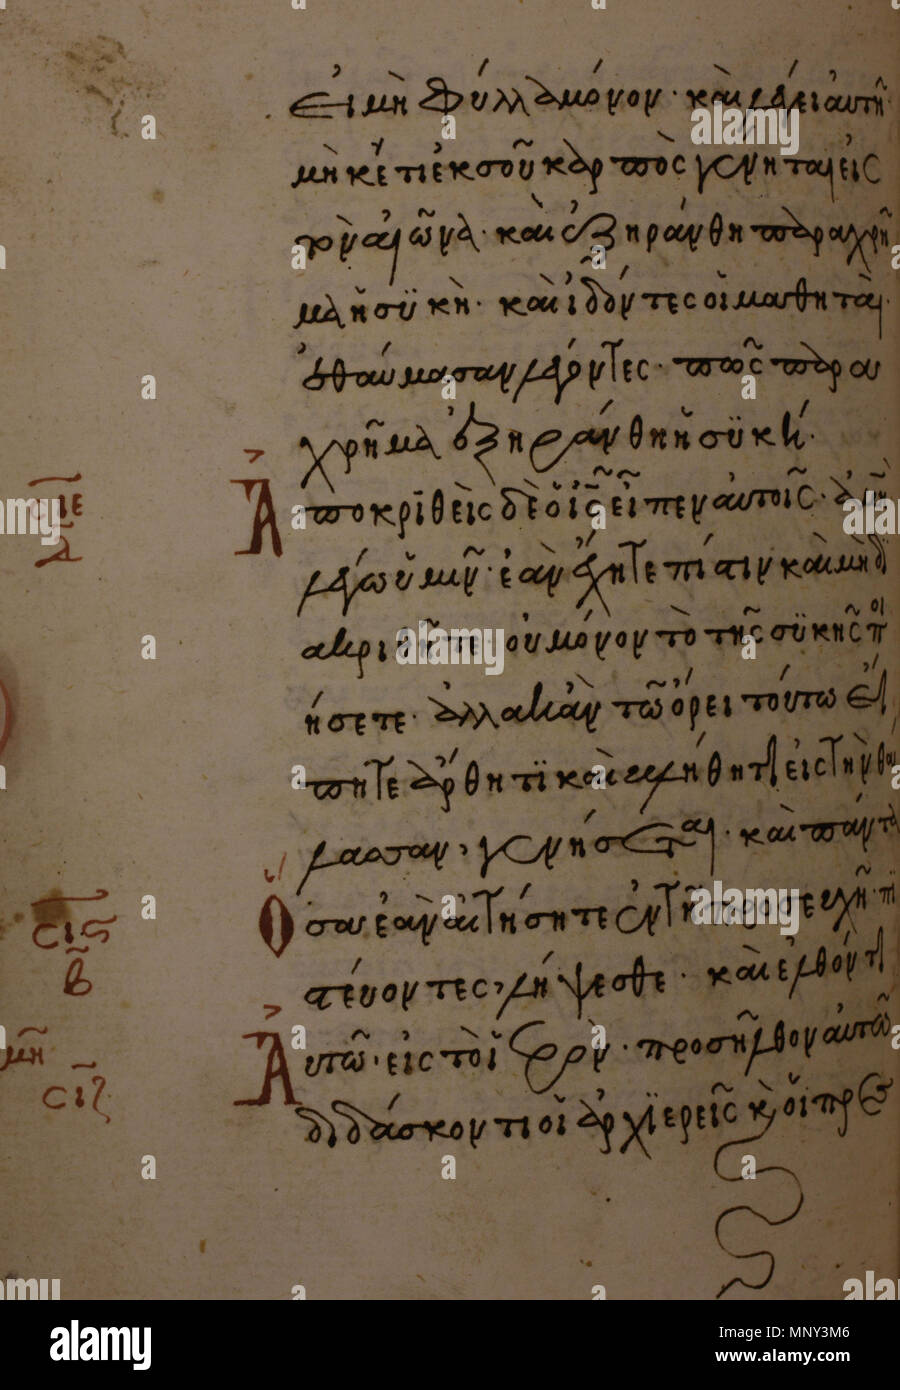 εἰ μὴ φύλλα μόνον· καὶ λέγει αὐτῆ·
μὴ κέτι ἐκ σοῦ καρπὸς γένηται εἰς
τὸν αἰῶνα· καὶ ἐξηράνθη παραχρῆ
μα ἡ συκὴ· καὶ ἰδόντες οἱ μαθηταὶ
ἐθαύμασαν λέγοντες· πῶς παρα
χρῆμα ἐξηράνθη ἡ συκή·
σιε Ἀποκριθεὶς δὲ ὁ ις εἶπεν αὐτοῖς· ἀμὴν
δ λέγω ὑμῖν· ἐὰν ἔχητε πίστιν καὶ μὴ δι
ακριθῆτε· οὐ μόνον τὸ τῆς συκῆς ποι
ήσετε· ἀλλὰ κἂν τῶ ὄρει τούτω εἴ
πητε ἄρθητι καὶ βλήθητι εἰς τὴν θά
λασσαν, γενήσεται· καὶ πάντα
σις Ὅσα ἐὰν αἰτήσητε ἐν τῆ προσευχῆ· πι
β στέυοντες, λήψεσθε· καὶ ἐλθόντι
μη Αὐτῶ· εἰς τὸ ἱερὸν· προσῆλθον αὐτῶ
σιζ διδάσκοντι οἱ ἀρχιερεῖς κ οἱ πρε
alamy
Image ID: MNY3M6
www.alamy.com